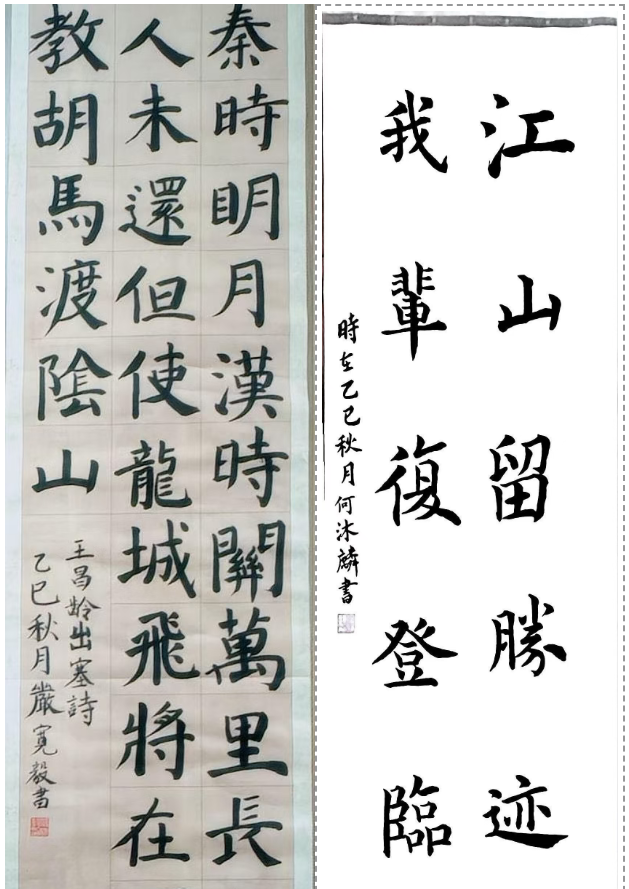 秦時明月漢時關萬里長
人未還但使龍城飛將在
教胡馬渡陰山
王昌齡出塞詩
乙巳秋月嚴寬毅書
江山留勝迹
我輩復登臨
時在乙巳秋月何沐麟書